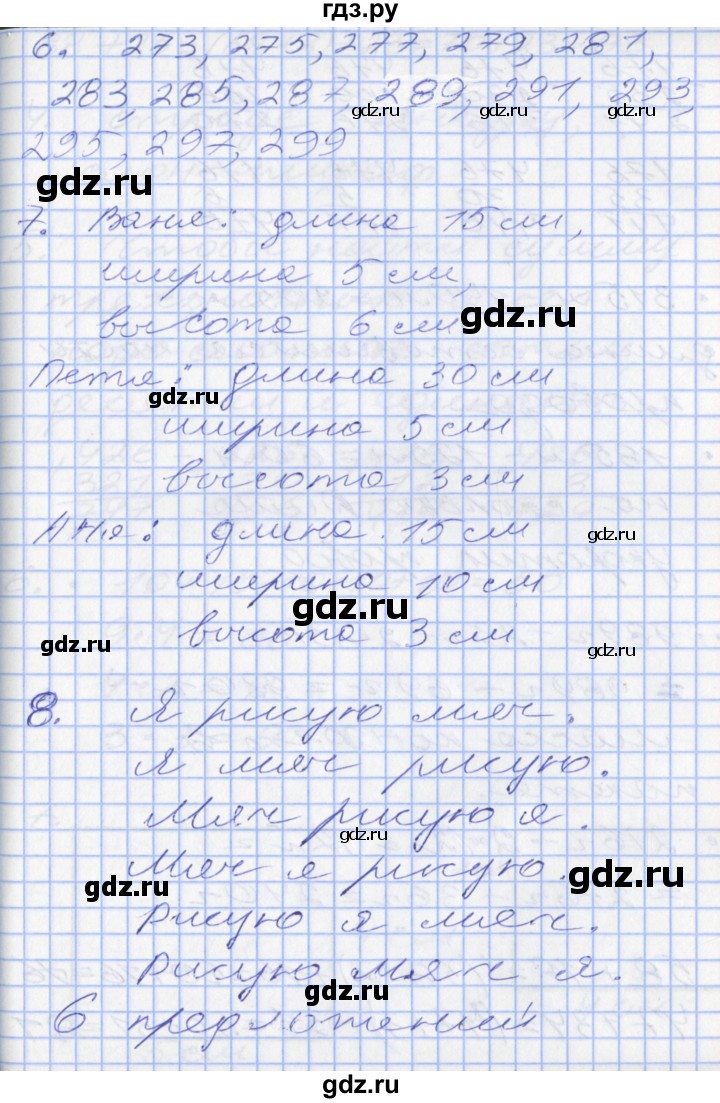 гдз.ру
6. 273, 275, 277, 279, 281,
283, 285, 287, 289, 291, 293,
gdz.ru gdz.ru gdz.ru
295, 297, 299
gdz.ru
7. Ваня: длина 15 см,
ширина 5 см,
высота 6 см
gdz.ru
Петя: длина 30 см
gdz.ru
ширина 5 см
высота 3 см
Аня: длина 15 см
gdz.ru
ширина 10 см
gdz.ru
высота 3 см
gdz.ru gdz.ru
8. Я рисую мяч.
Я мяч рисую.
Мяч рисую я.
gdz.ru
Мяч я рисую.
gdz.ru gdz.ru
Рисую я мяч.
Рисую мяч я.
gdz.ru
6 предложений
gdz.ru
gdz.ru